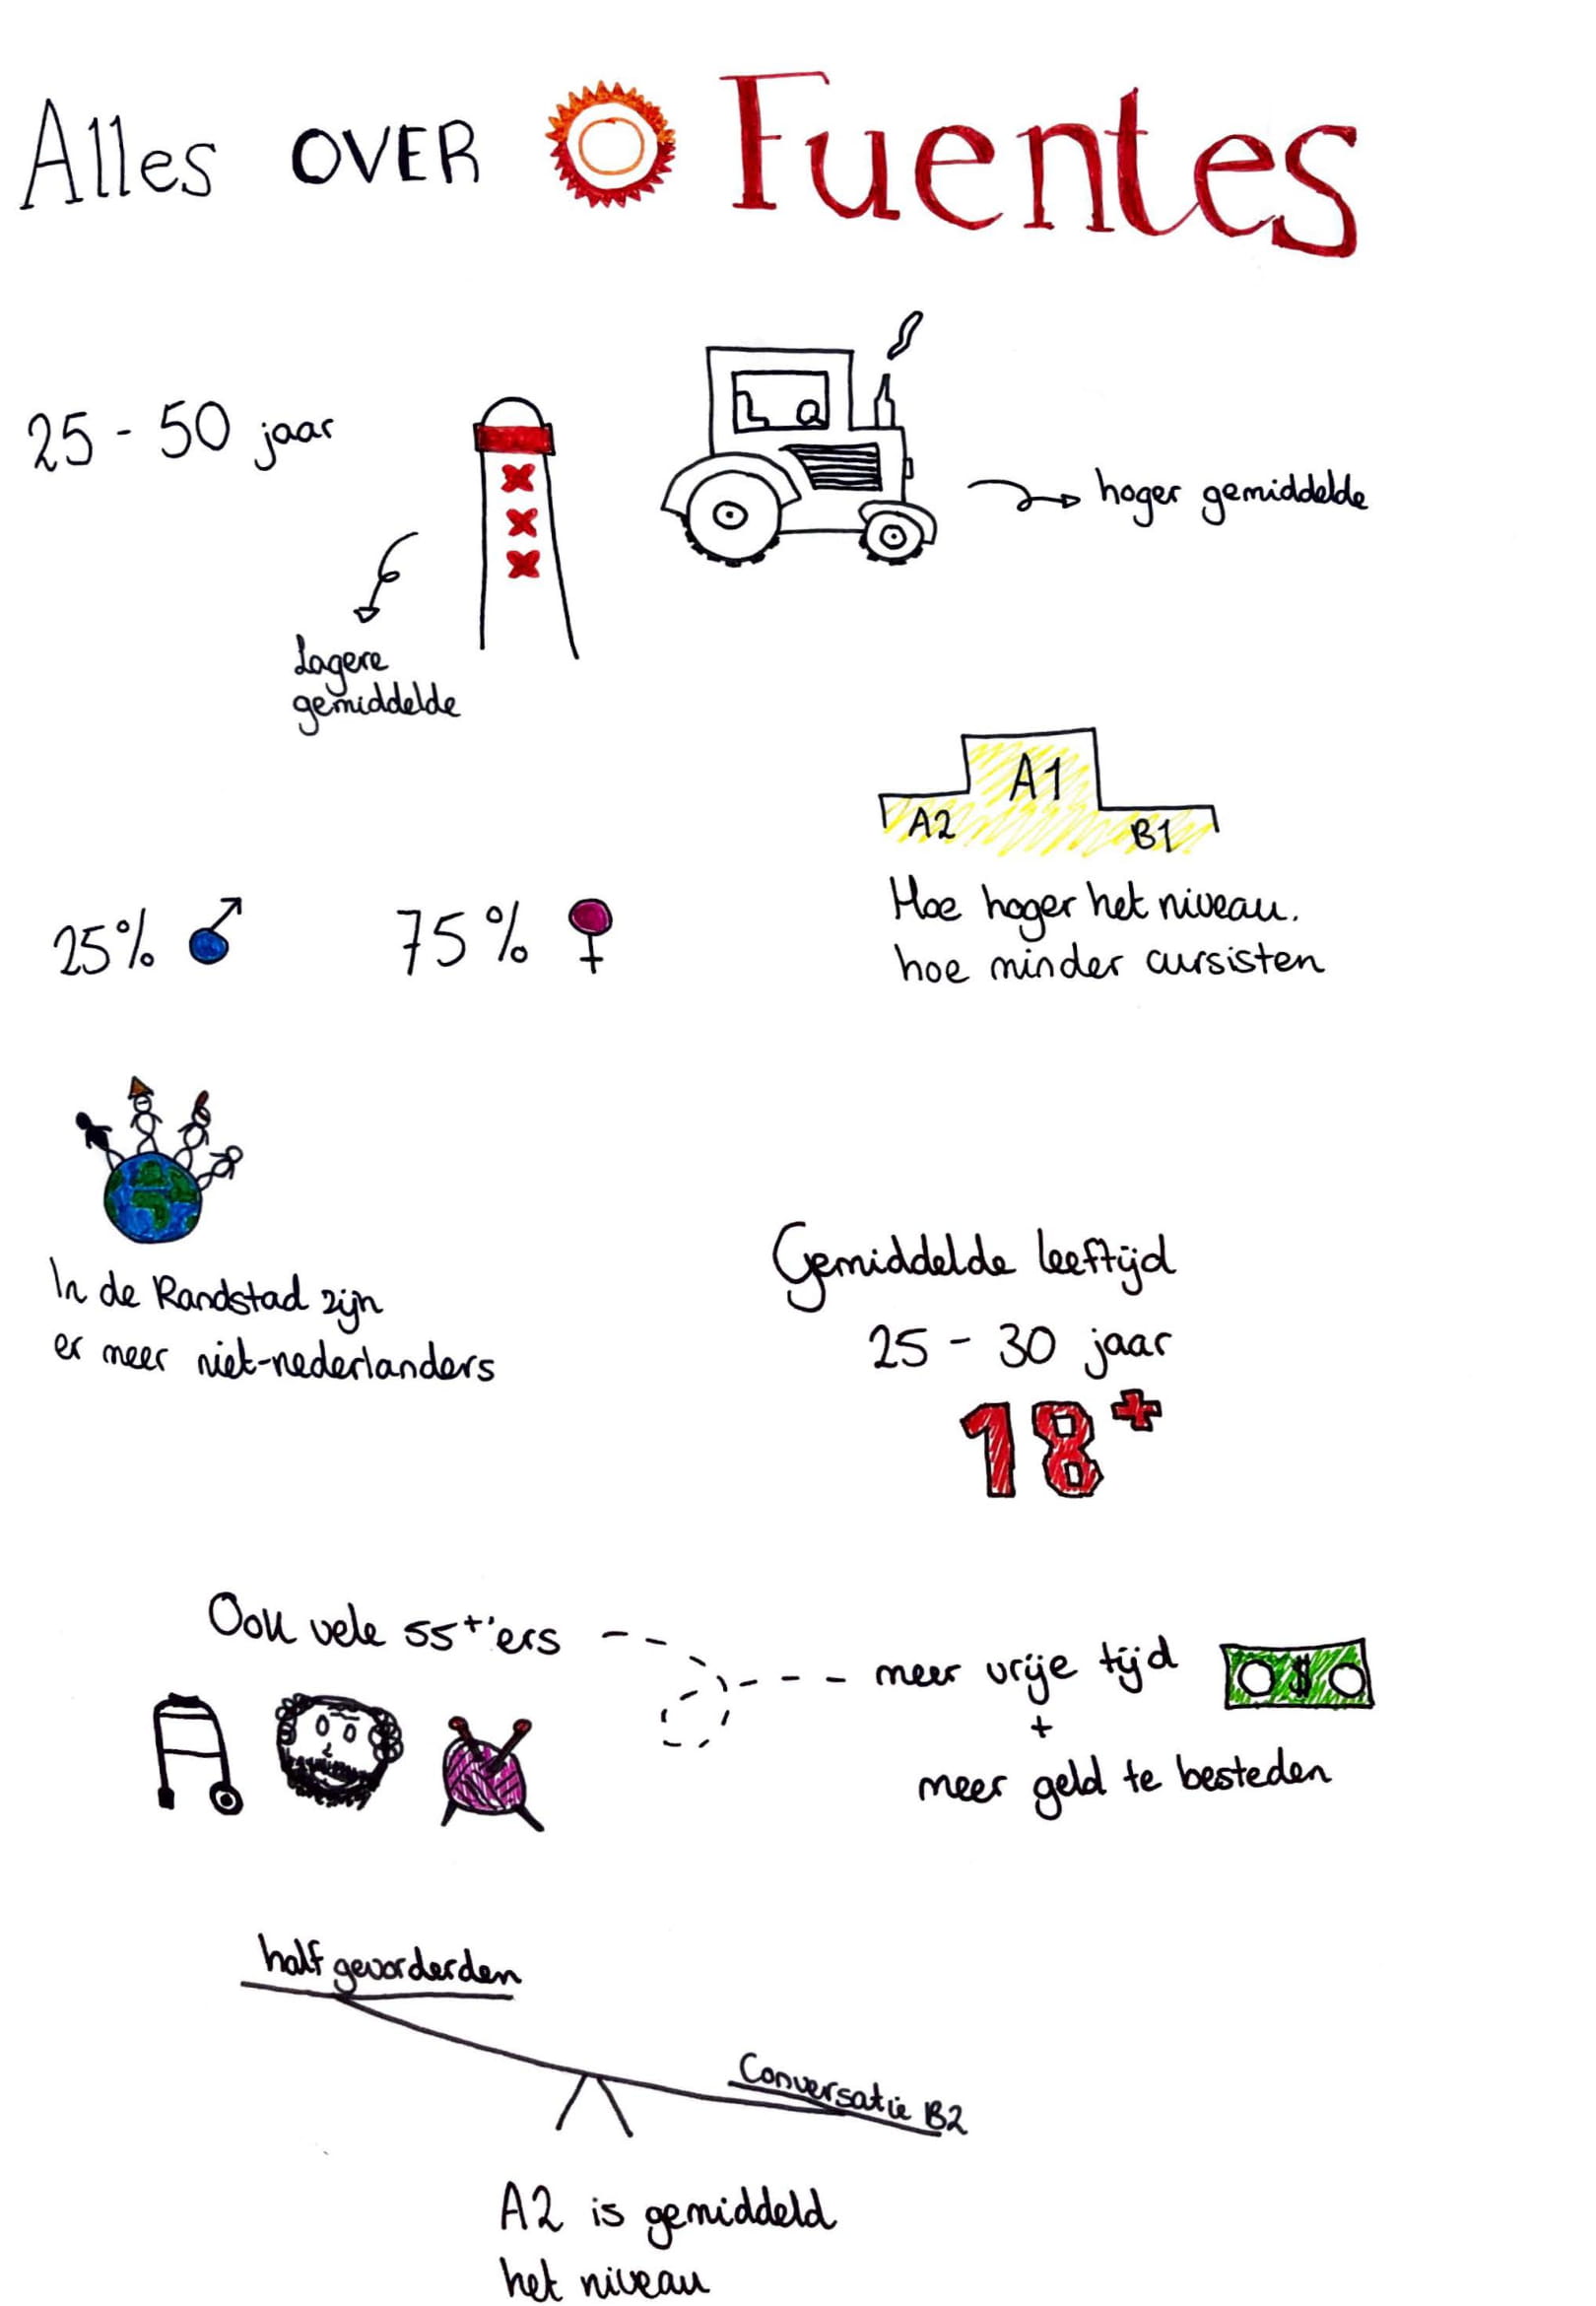 Alles OVER Fuentes
25 - 50 jaar
hoger gemiddelde
Lagere
gemiddelde
A1
A2
B1
Hoe hoger het niveau.
hoe minder cursisten
25% ♂
75% ♀
In de Randstad zijn
er meer niet-nederlanders
Gemiddelde leeftijd
25 - 30 jaar
18+
Ook vele 55+'ers
meer vrije tijd
$
+
meer geld te besteden
half gevorderden
Conversatie B2
A2 is gemiddeld
het niveau